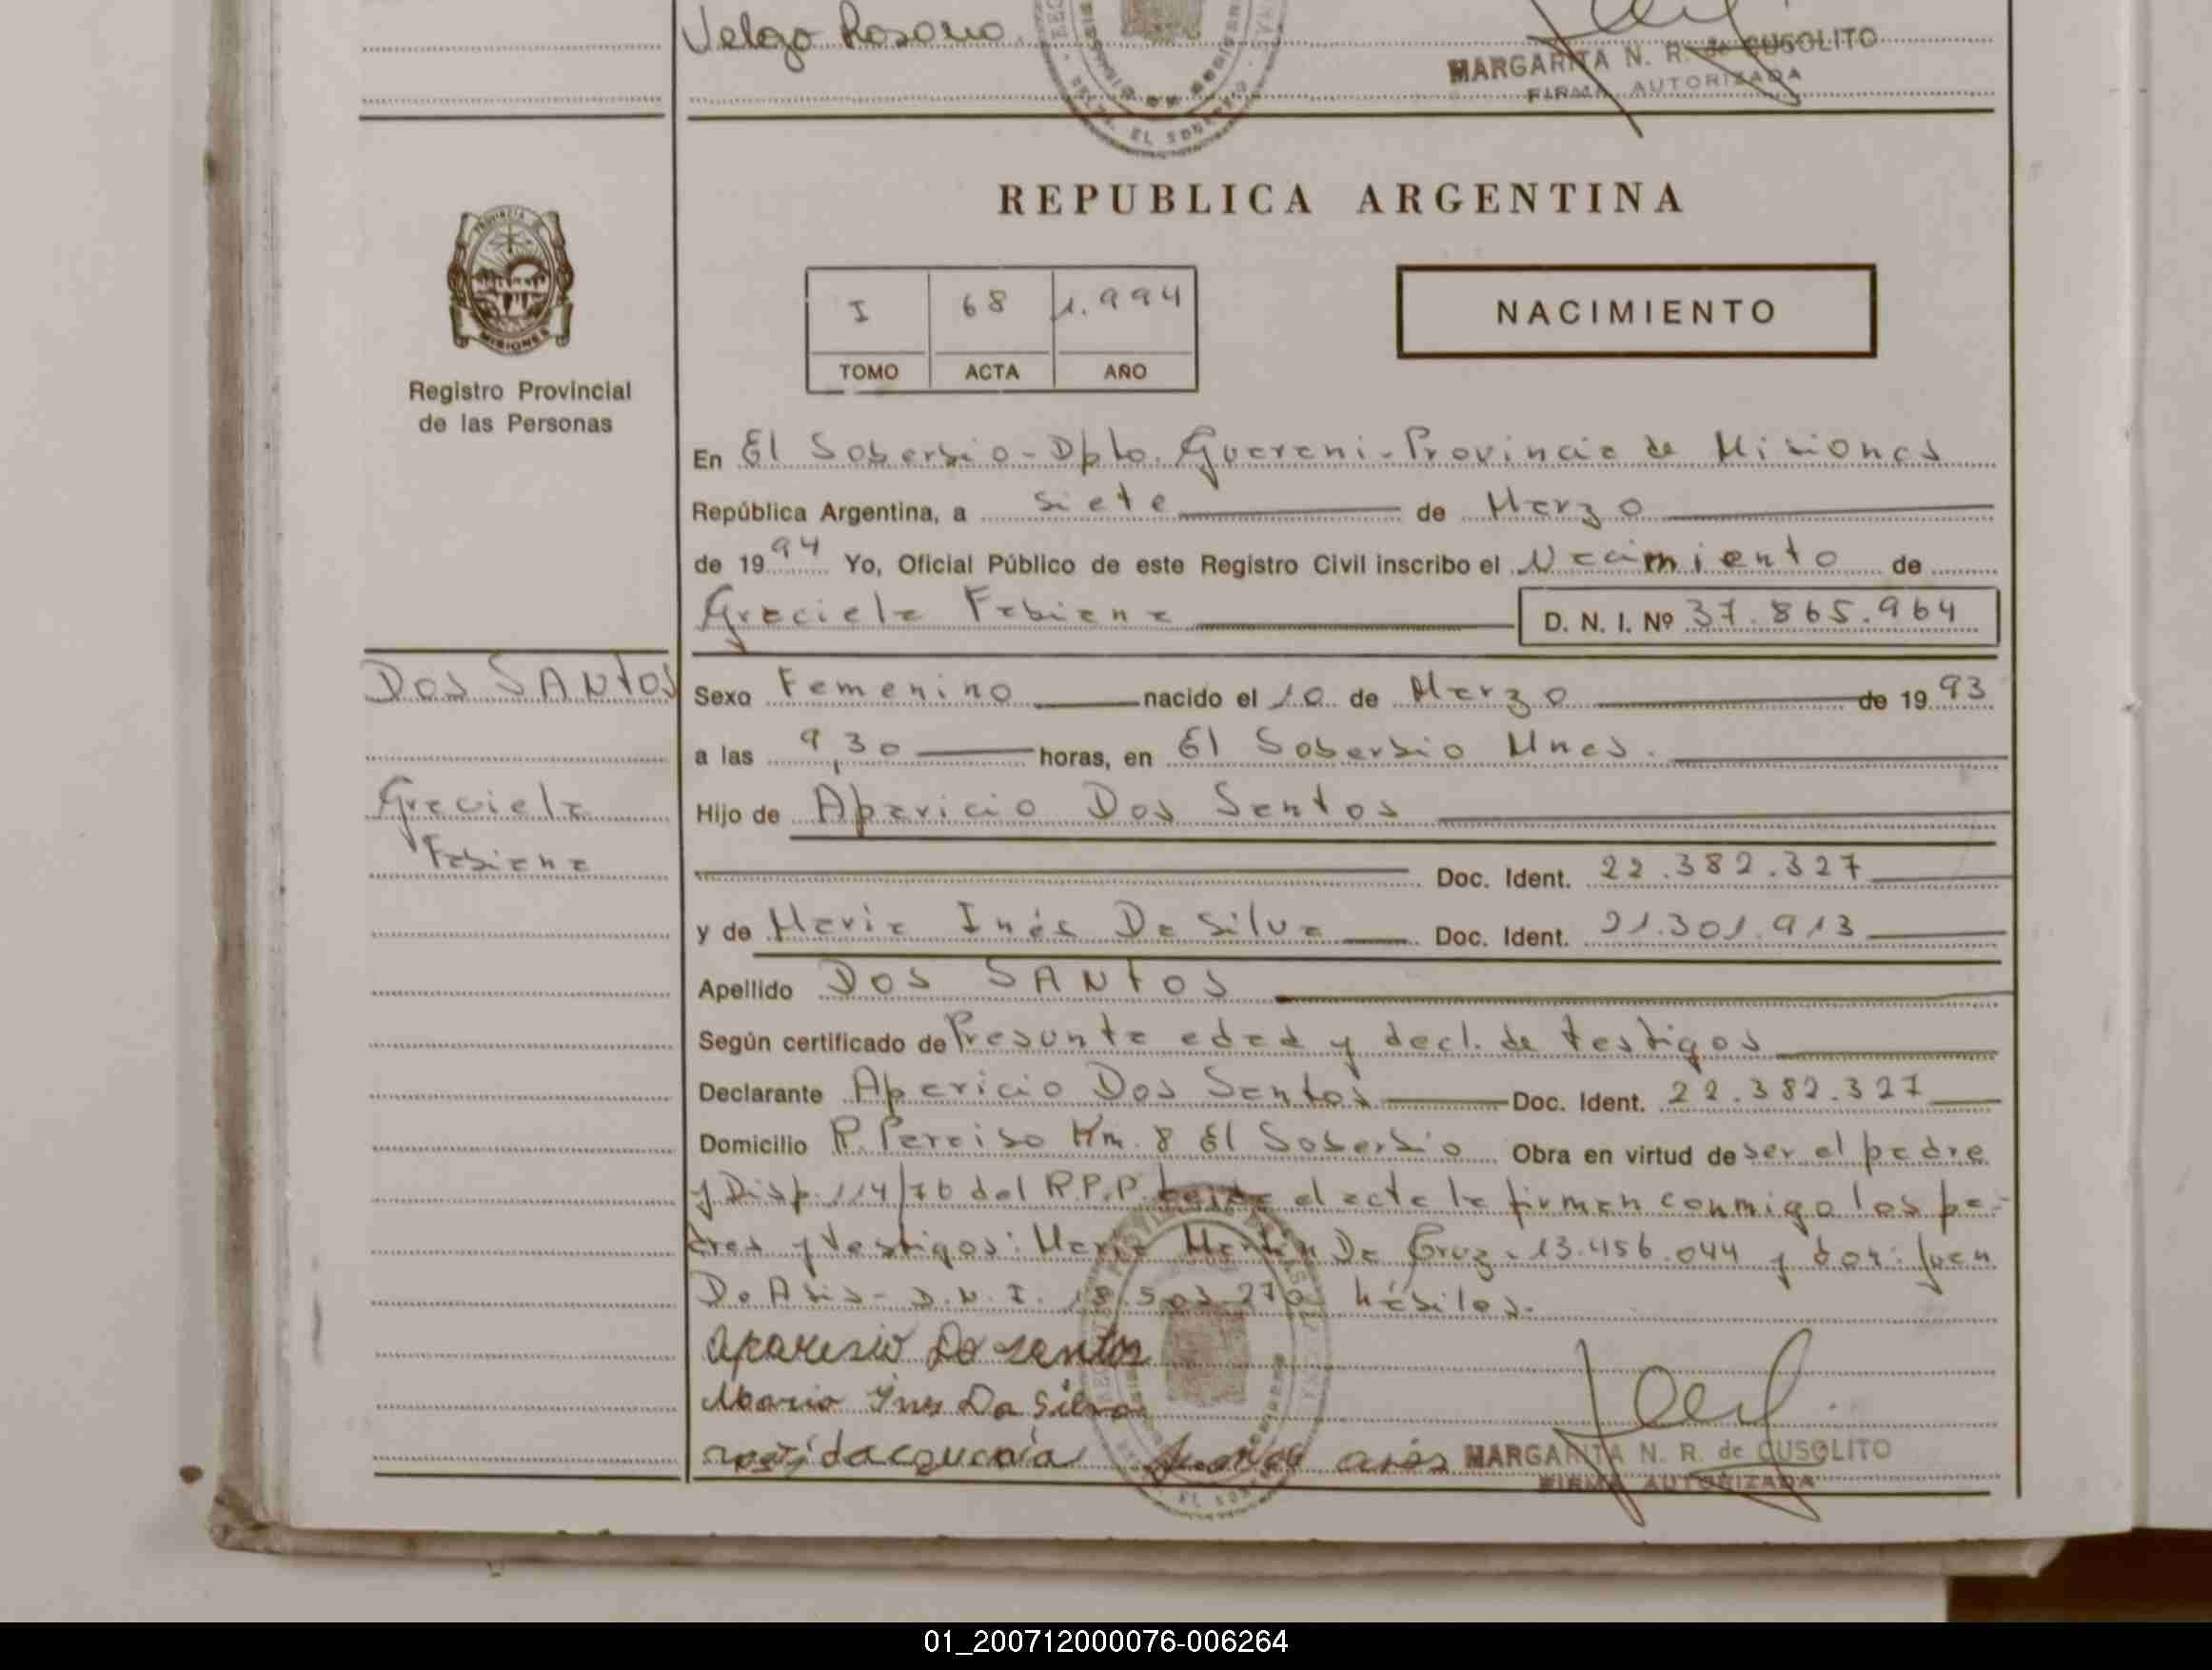 Velgo Rosario
MARGARITA N. R. de CUSOLITO
FIRMA AUTORIZADA
EL SOBERBIO
REPUBLICA ARGENTINA
PROVINCIA DE
MISIONES
I 68 1.994
TOMO ACTA AÑO
NACIMIENTO
Registro Provincial
de las Personas
En El Soberbio - Dpto. Guarani - Provincia de Misiones
República Argentina, a siete de Marzo
de 1994 Yo, Oficial Público de este Registro Civil inscribo el Nacimiento de
Graciela Fabiana D. N. I. Nº 37.865.964
DOS SANTOS
Sexo Femenino nacido el 10 de Marzo de 1993
a las 9,30 horas, en El Soberbio Mnes.
Graciela
Fabiana
Hijo de Aparicio Dos Santos
Doc. Ident. 22.382.327
y de Maria Inés Da Silva Doc. Ident. 21.301.913
Apellido DOS SANTOS
Según certificado de Presunta edad y decl. de testigos
Declarante Aparicio Dos Santos Doc. Ident. 22.382.327
Domicilio P. Paraiso Km. 8 El Soberbio Obra en virtud de ser el padre
y Disp. 114/76 del R.P.P. Leida el acta la firman conmigo los pa-
dres y testigos: Maria De Cruz - 13.456.044 y don: Juan
De Asis - D.N.I. 18.503.270 hábiles.
Aparesio Do santos
Maria Ines Da Silva
MARGARITA N. R. de CUSOLITO
FIRMA AUTORIZADA
01_200712000076-006264